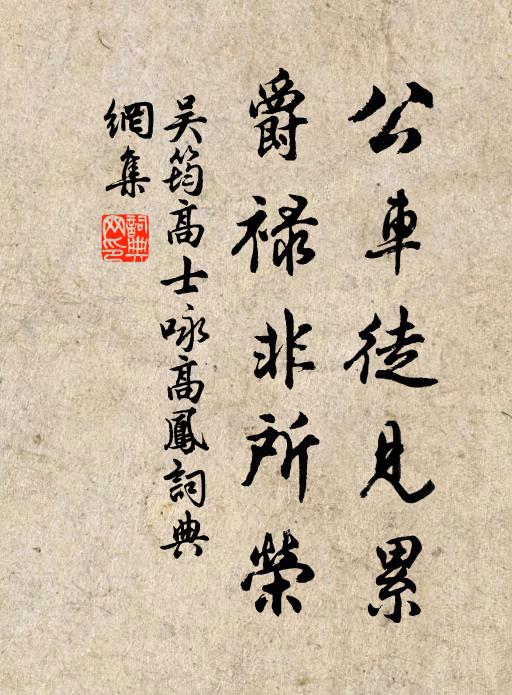 公車徒見累
爵禄非所榮
吳筠高士咏高鳳詞典
網集
詞典
网印